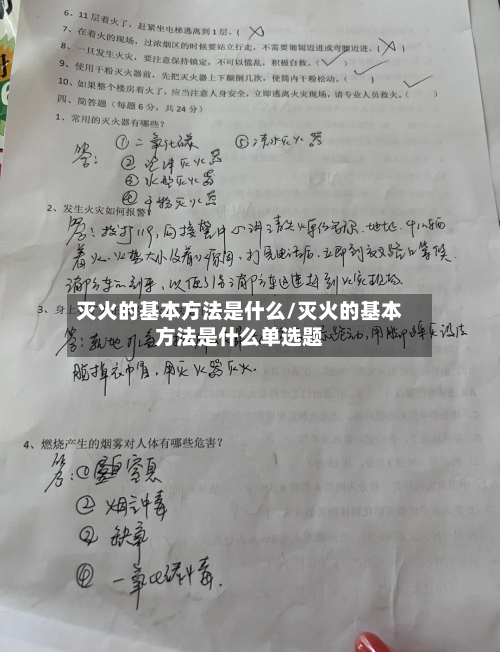 6、11层着火了,赶紧坐电梯逃离到1层。( X )
7、在着火的现场,过浓烟区的时候要站立行走,不需要匍匐迈进或弯腰迈进。( X )
8、一旦发生火灾,要注意保持镇定,不可以慌乱,积极自救。( ✓ )
9、使用干粉灭火器前,先把灭火器上下颠倒几次,使筒内干粉松动。( ✓ )
10、如果整个楼房着火了,应当注意人身安全,立即逃离火灾现场,请专业人员救火。( ✓ )
四、简答题(每题6分,共24分)
1、常用的灭火器有哪些?
答: ①二氧化碳 ⑤清水灭火器
②泡沫灭火器
③水型灭火器
④干粉灭火器
2、发生火灾如何报警?
答:拨打119,向接警中心讲清失火单位的名称、地址、什么东西
着火、火势大小
3、身上
灭火的基本方法是什么/灭火的基本
方法是什么单选题
答:就地打
脱掉衣帽,用灭火器灭火。
4、燃烧产生的烟雾对人体有哪些危害?
答:① 窒息
②烟气中毒
③缺氧
④一氧化碳中毒.